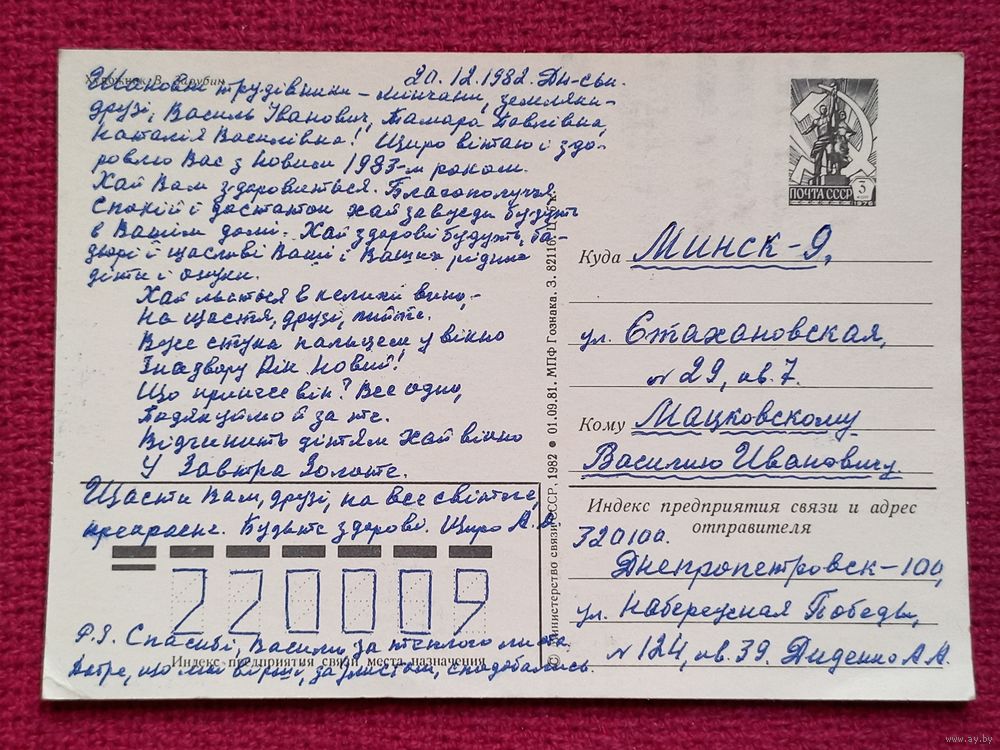 Художник В. Зарубин
20.12.1982. Дн-ськ.
Шановні трудівники – мінчани, земляки-
друзі, Василь Іванович, Тамара Павлівна,
Наталія Василівна! Щиро вітаю і здо-
ровлю Вас з Новим 1983-м роком.
Хай Вам здоровиться. Благополуччя,
спокій і достаток хай завжди будуть
в Вашім домі. Хай здорові будуть, ба-
дьорі і щасливі Ваші і Ваших рідних
діти і онуки.
Хай ллється в келихи вино, –
На щастя, друзі, пийте.
Вже стука пальцем у вікно
Знадвору Рік Новий!
Що принесе він? Все одно,
Подякуймо й за те.
Відчинить дітям хай вікно
У Завтра Золоте.
Щастя Вам, друзі, на все святе,
прекрасне. Будьте здорові. Щиро А. А.
220009
Индекс предприятия связи места назначения
P.S. Спасибі, Василю, за теплого листа.
Добре, що мої вірші, за змістом, сподобались.
© Министерство связи СССР, 1982 ● 01.09.81. МПФ Гознака. З. 82116.
ПОЧТА СССР
3
коп
1976
Куда Минск-9,
ул. Стахановская,
№ 29, кв. 7.
Кому Мацковскому
Василию Ивановичу.
Индекс предприятия связи и адрес
отправителя
320100.
Днепропетровск-100,
ул. Набережная Победы,
№ 124, кв. 39. Диденко А А.